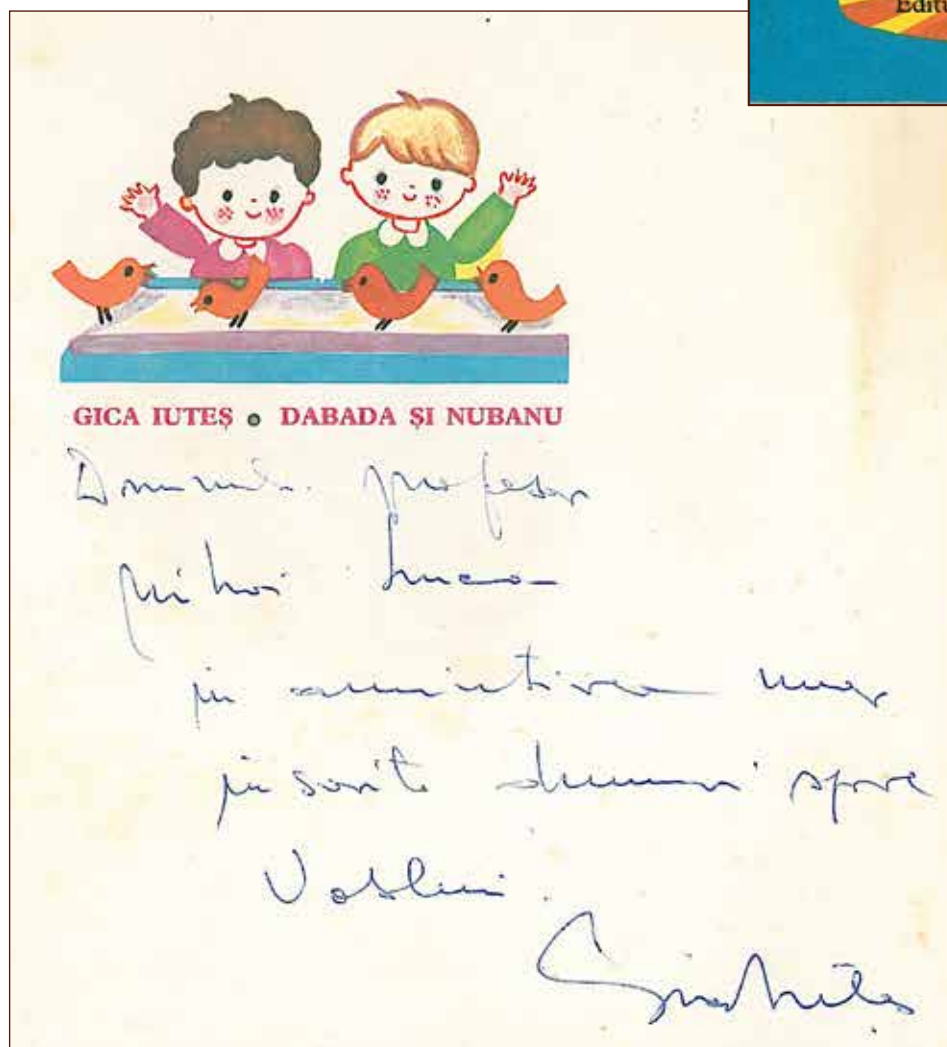 Editu
GICA IUTEȘ • DABADA ȘI NUBANU
Domnului profesor
Mihai
în amintirea unor
însorite drumuri spre
Vaslui.
Gica Iuteș